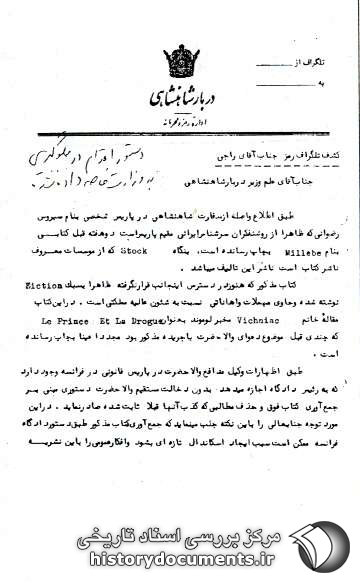 تلگراف از
به
دربار شاهنشاهی
اداره رمز و محرمانه
دستور اقدام در جلوگیری
به وزارت خارجه داده شد
کشف تلگراف رمز جناب آقای راجی
جناب آقای علم وزیر دربار شاهنشاهی
طبق اطلاع واصله از سفارت شاهنشاهی در پاریس شخصی بنام سیروس
رضوانی که ظاهرا از روشنفکران سرشناس ایرانی مقیم پاریس است دو هفته قبل کتابی
بنام Millebe بچاپ رسانده است، بنگاه Stock که از موسسات معروف
ناشر کتاب است ناشر این تالیف میباشد.
کتاب مذکور که هنوز در دسترس اینجانب قرار نگرفته ظاهرا بسبک Fiction
نوشته شده و حاوی جملات و اهاناتی نسبت به شئون عالیه مملکتی است. در این کتاب
مقاله خانم Vichniac مخبر لوموند بعنوان Le Prince Et La Drogue
که چندی قبل موضوع دعوای والاحضرت با جریده مذکور بود مجددا عینا بچاپ رسانده
است.
طبق اظهارات وکیل مدافع والاحضرت در پاریس قانونی در فرانسه وجود دارد
که به رئیس دادگاه اجازه میدهد بدون دخالت مستقیم والاحضرت دستوری مبنی بر
جمع آوری کتاب فوق و حذف مطالبی که کذب آنها قبلا ثابت شده صادر نماید. در این
مورد توجه جنابعالی را باین نکته جلب مینماید که جمع آوری کتاب مذکور طبق دستور دادگاه
فرانسه ممکن است سبب ایجاد اسکاندال تازه ای بشود و افکار عمومی را باین نشریه
مرکز بررسی اسناد تاریخی
historydocuments.ir